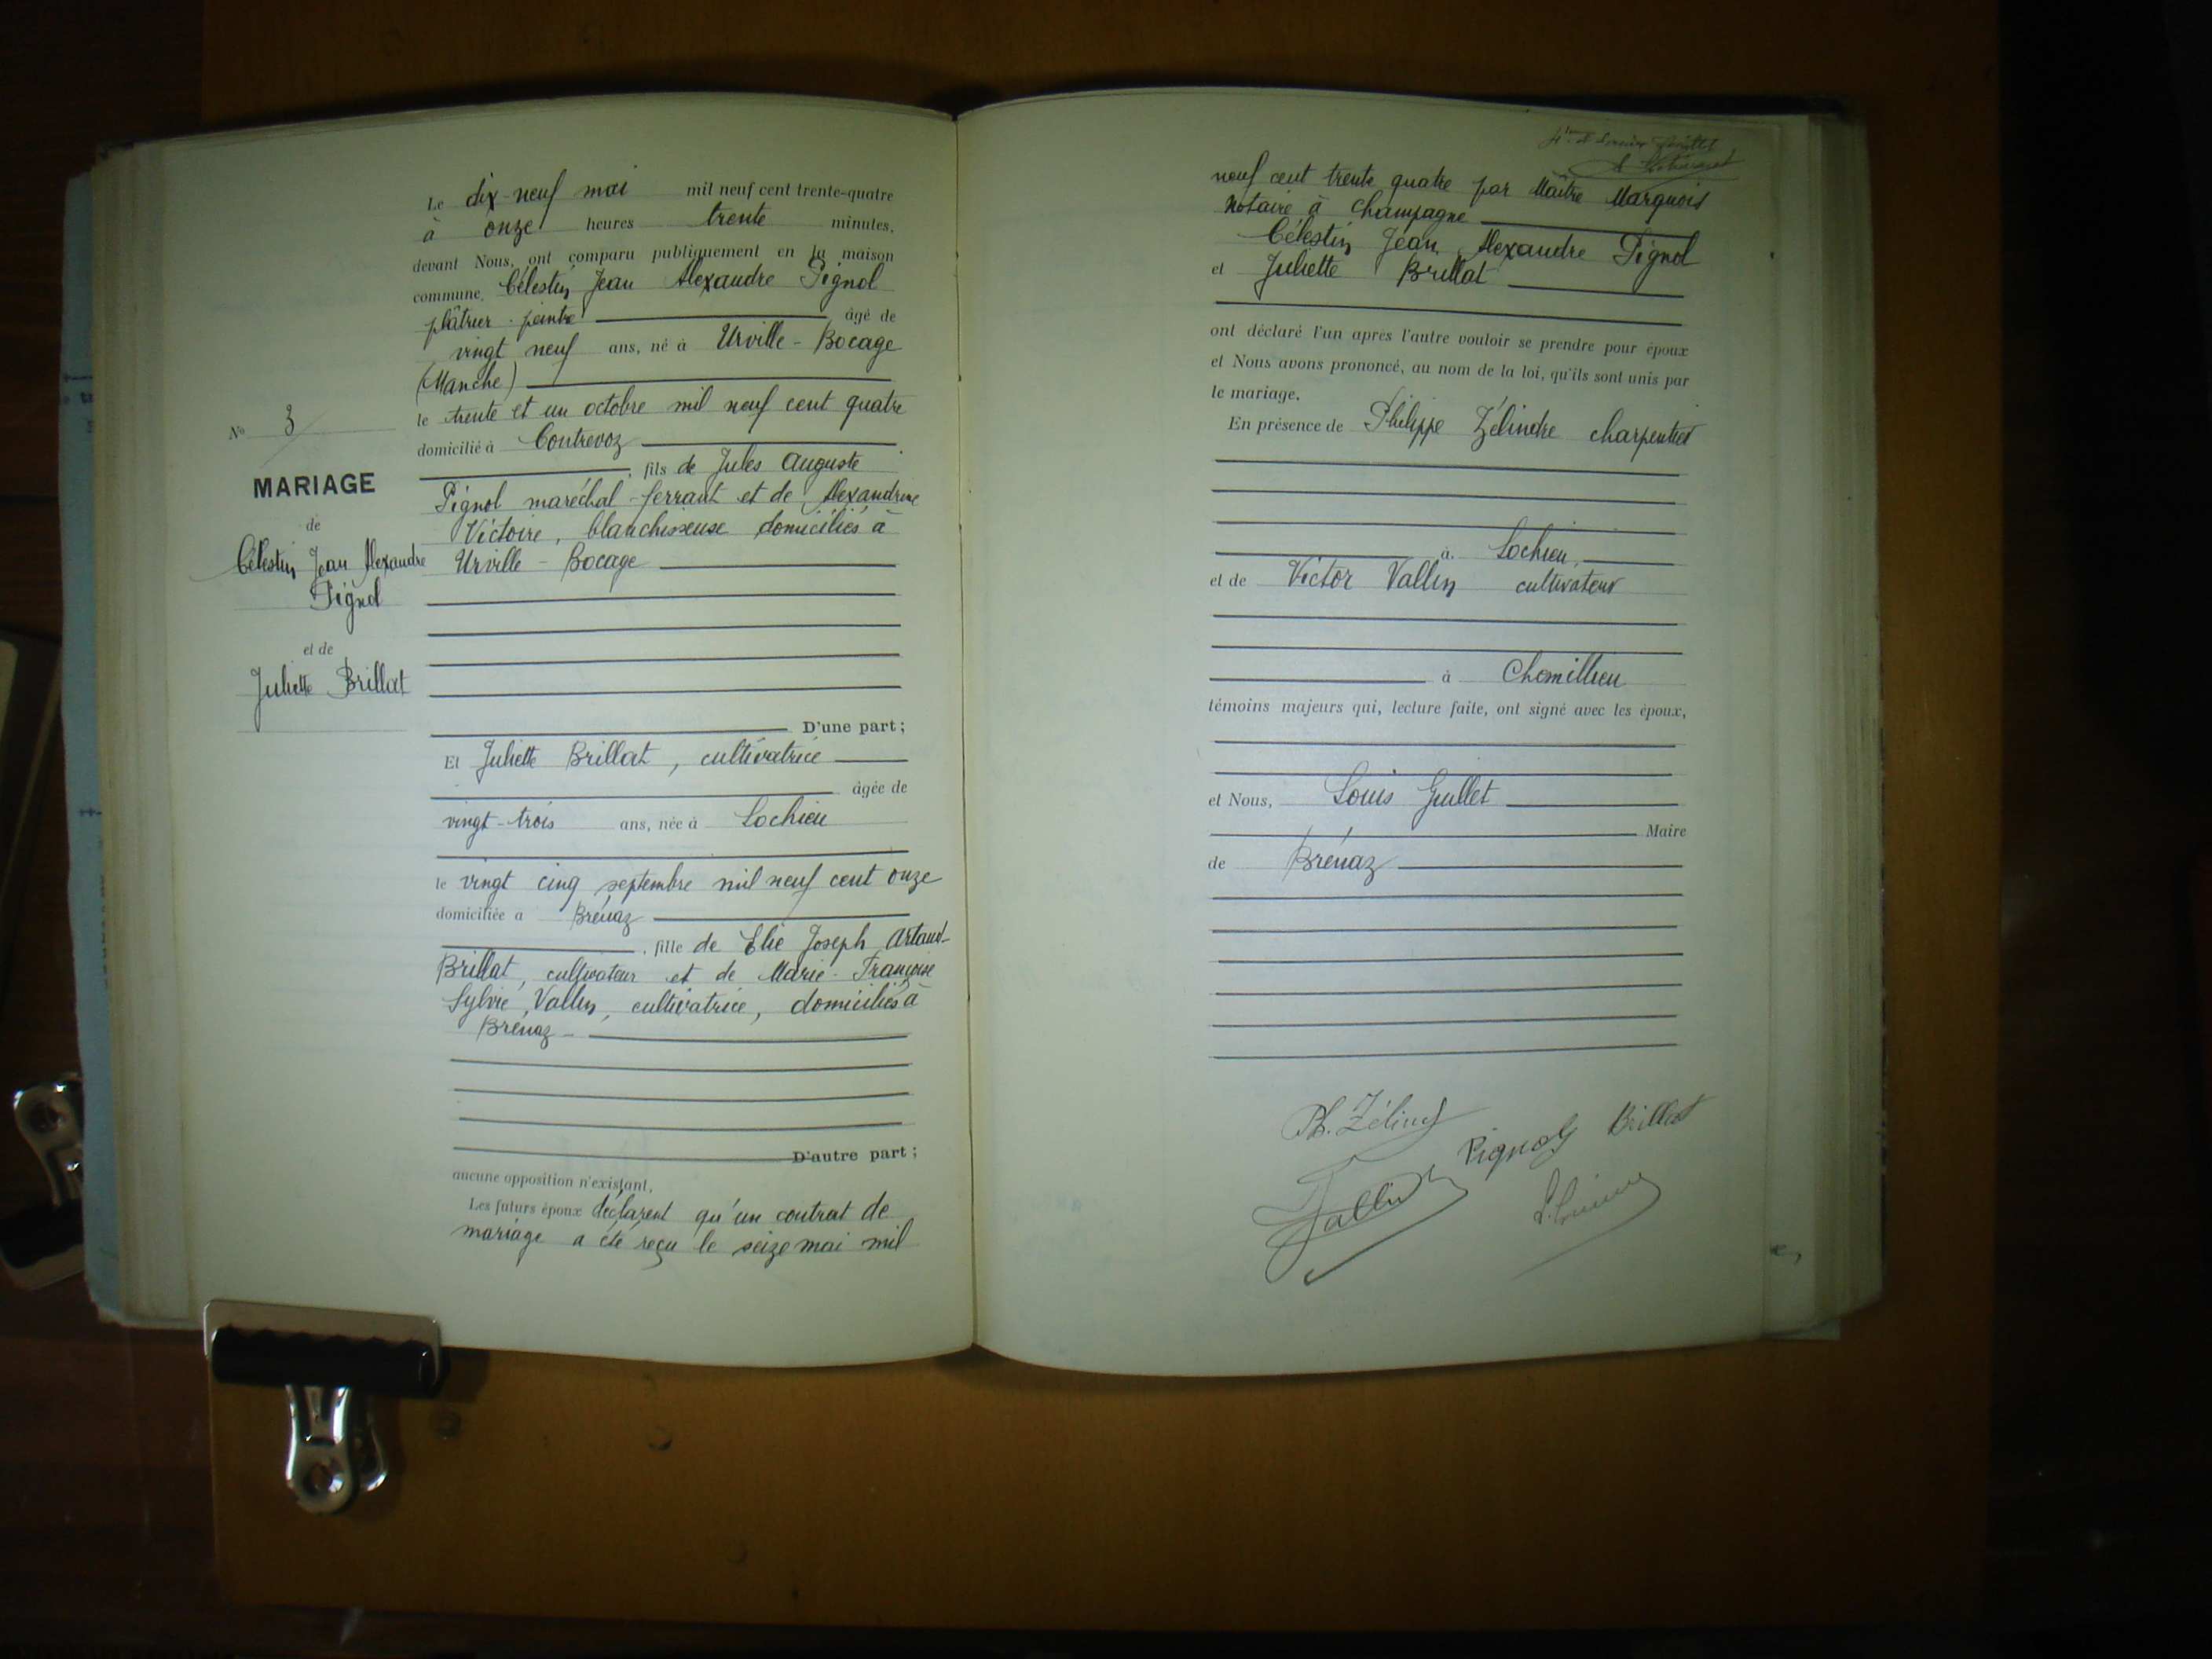 Le dix-neuf mai mil neuf cent trente-quatre
à onze heures trente minutes,
devant Nous, ont comparu publiquement en la maison
commune, Célestin Jean Alexandre Pignol
plâtrier-peintre âgé de
vingt neuf ans, né à Urville-Bocage
(Manche)
le trente et un octobre mil neuf cent quatre
domicilié à Contrevoz
, fils de Jules Auguste
Pignol maréchal-ferrant et de Alexandrine
Victoire, blanchisseuse domiciliés à
Urville-Bocage
D'une part;
Et Juliette Brillat, cultivatrice
âgée de
vingt-trois ans, née à Lochieu
le vingt cinq septembre mil neuf cent onze
domiciliée à Brénaz
, fille de Elie Joseph Artaud-
Brillat, cultivateur et de Marie-Françoise
Sylvie, Vallin, cultivatrice, domiciliés à
Brénaz
D'autre part;
aucune opposition n'existant.
Les futurs époux déclarent qu'un contrat de
mariage a été reçu le seize mai mil
No 3
MARIAGE
de
Célestin Jean Alexandre
Pignol
et de
Juliette Brillat
neuf cent trente quatre par Maître Marquois
Notaire à Champagne
Célestin Jean Alexandre Pignol
et Juliette Brillat
ont déclaré l'un après l'autre vouloir se prendre pour époux
et Nous avons prononcé, au nom de la loi, qu'ils sont unis par
le mariage.
En présence de Philippe Zélindre charpentier
à Lochieu,
et de Victor Vallin cultivateur
à Chemillieu
témoins majeurs qui, lecture faite, ont signé avec les époux,
et Nous, Louis Guillet
Maire
de Brénaz
Ph. Zélind
Pignol Brillat
Vallin